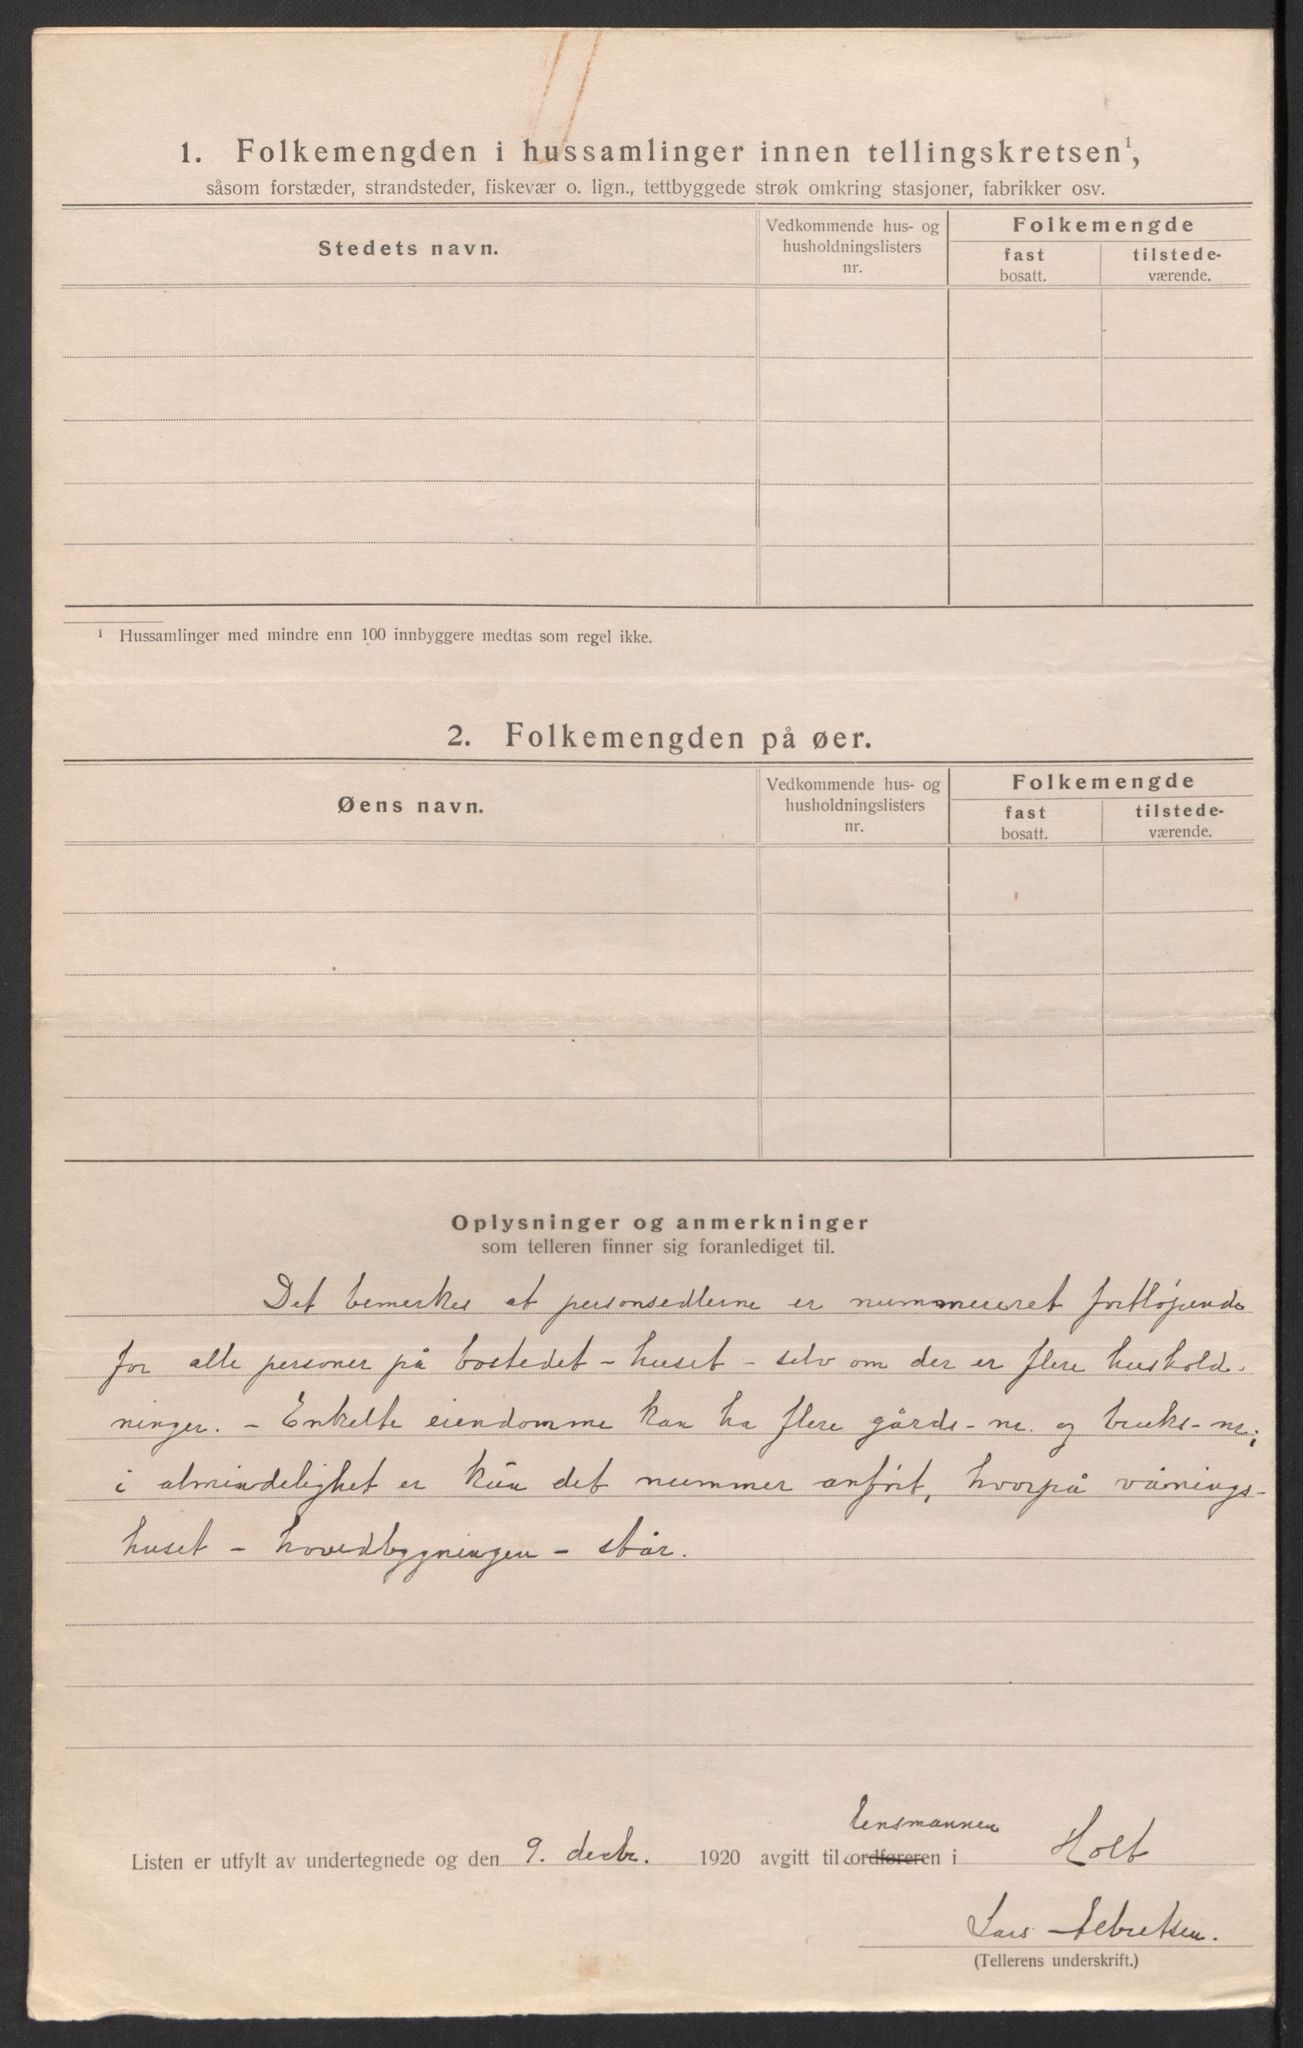 1. Folkemengden i hussamlinger innen tellingskretsen¹,
såsom forstæder, strandsteder, fiskevær o. lign., tettbyggede strøk omkring stasjoner, fabrikker osv.
Stedets navn.
Vedkommende hus- og
husholdningslisters
nr.
Folkemengde
fast
bosatt.
tilstede-
værende.
¹ Hussamlinger med mindre enn 100 innbyggere medtas som regel ikke.
2. Folkemengden på øer.
Øens navn.
Vedkommende hus- og
husholdningslisters
nr.
Folkemengde
fast
bosatt.
tilstede-
værende.
Oplysninger og anmerkninger
som telleren finner sig foranlediget til.
Det bemerkes at personsedlerne er nummereret fortløpende
for alle personer på bostedet - huset - selv om der er flere hushold-
ninger. - Enkelte eiendomme kan ha flere gårds-nr. og bruks-nr;
i almindelighet er kun det nummer anført, hvorpå vånings-
huset - hovedbygningen - står.
lensmannen
Listen er utfylt av undertegnede og den 9. decbr. 1920 avgitt til ordføreren i Holt
Lars Albretsen.
(Tellerens underskrift.)